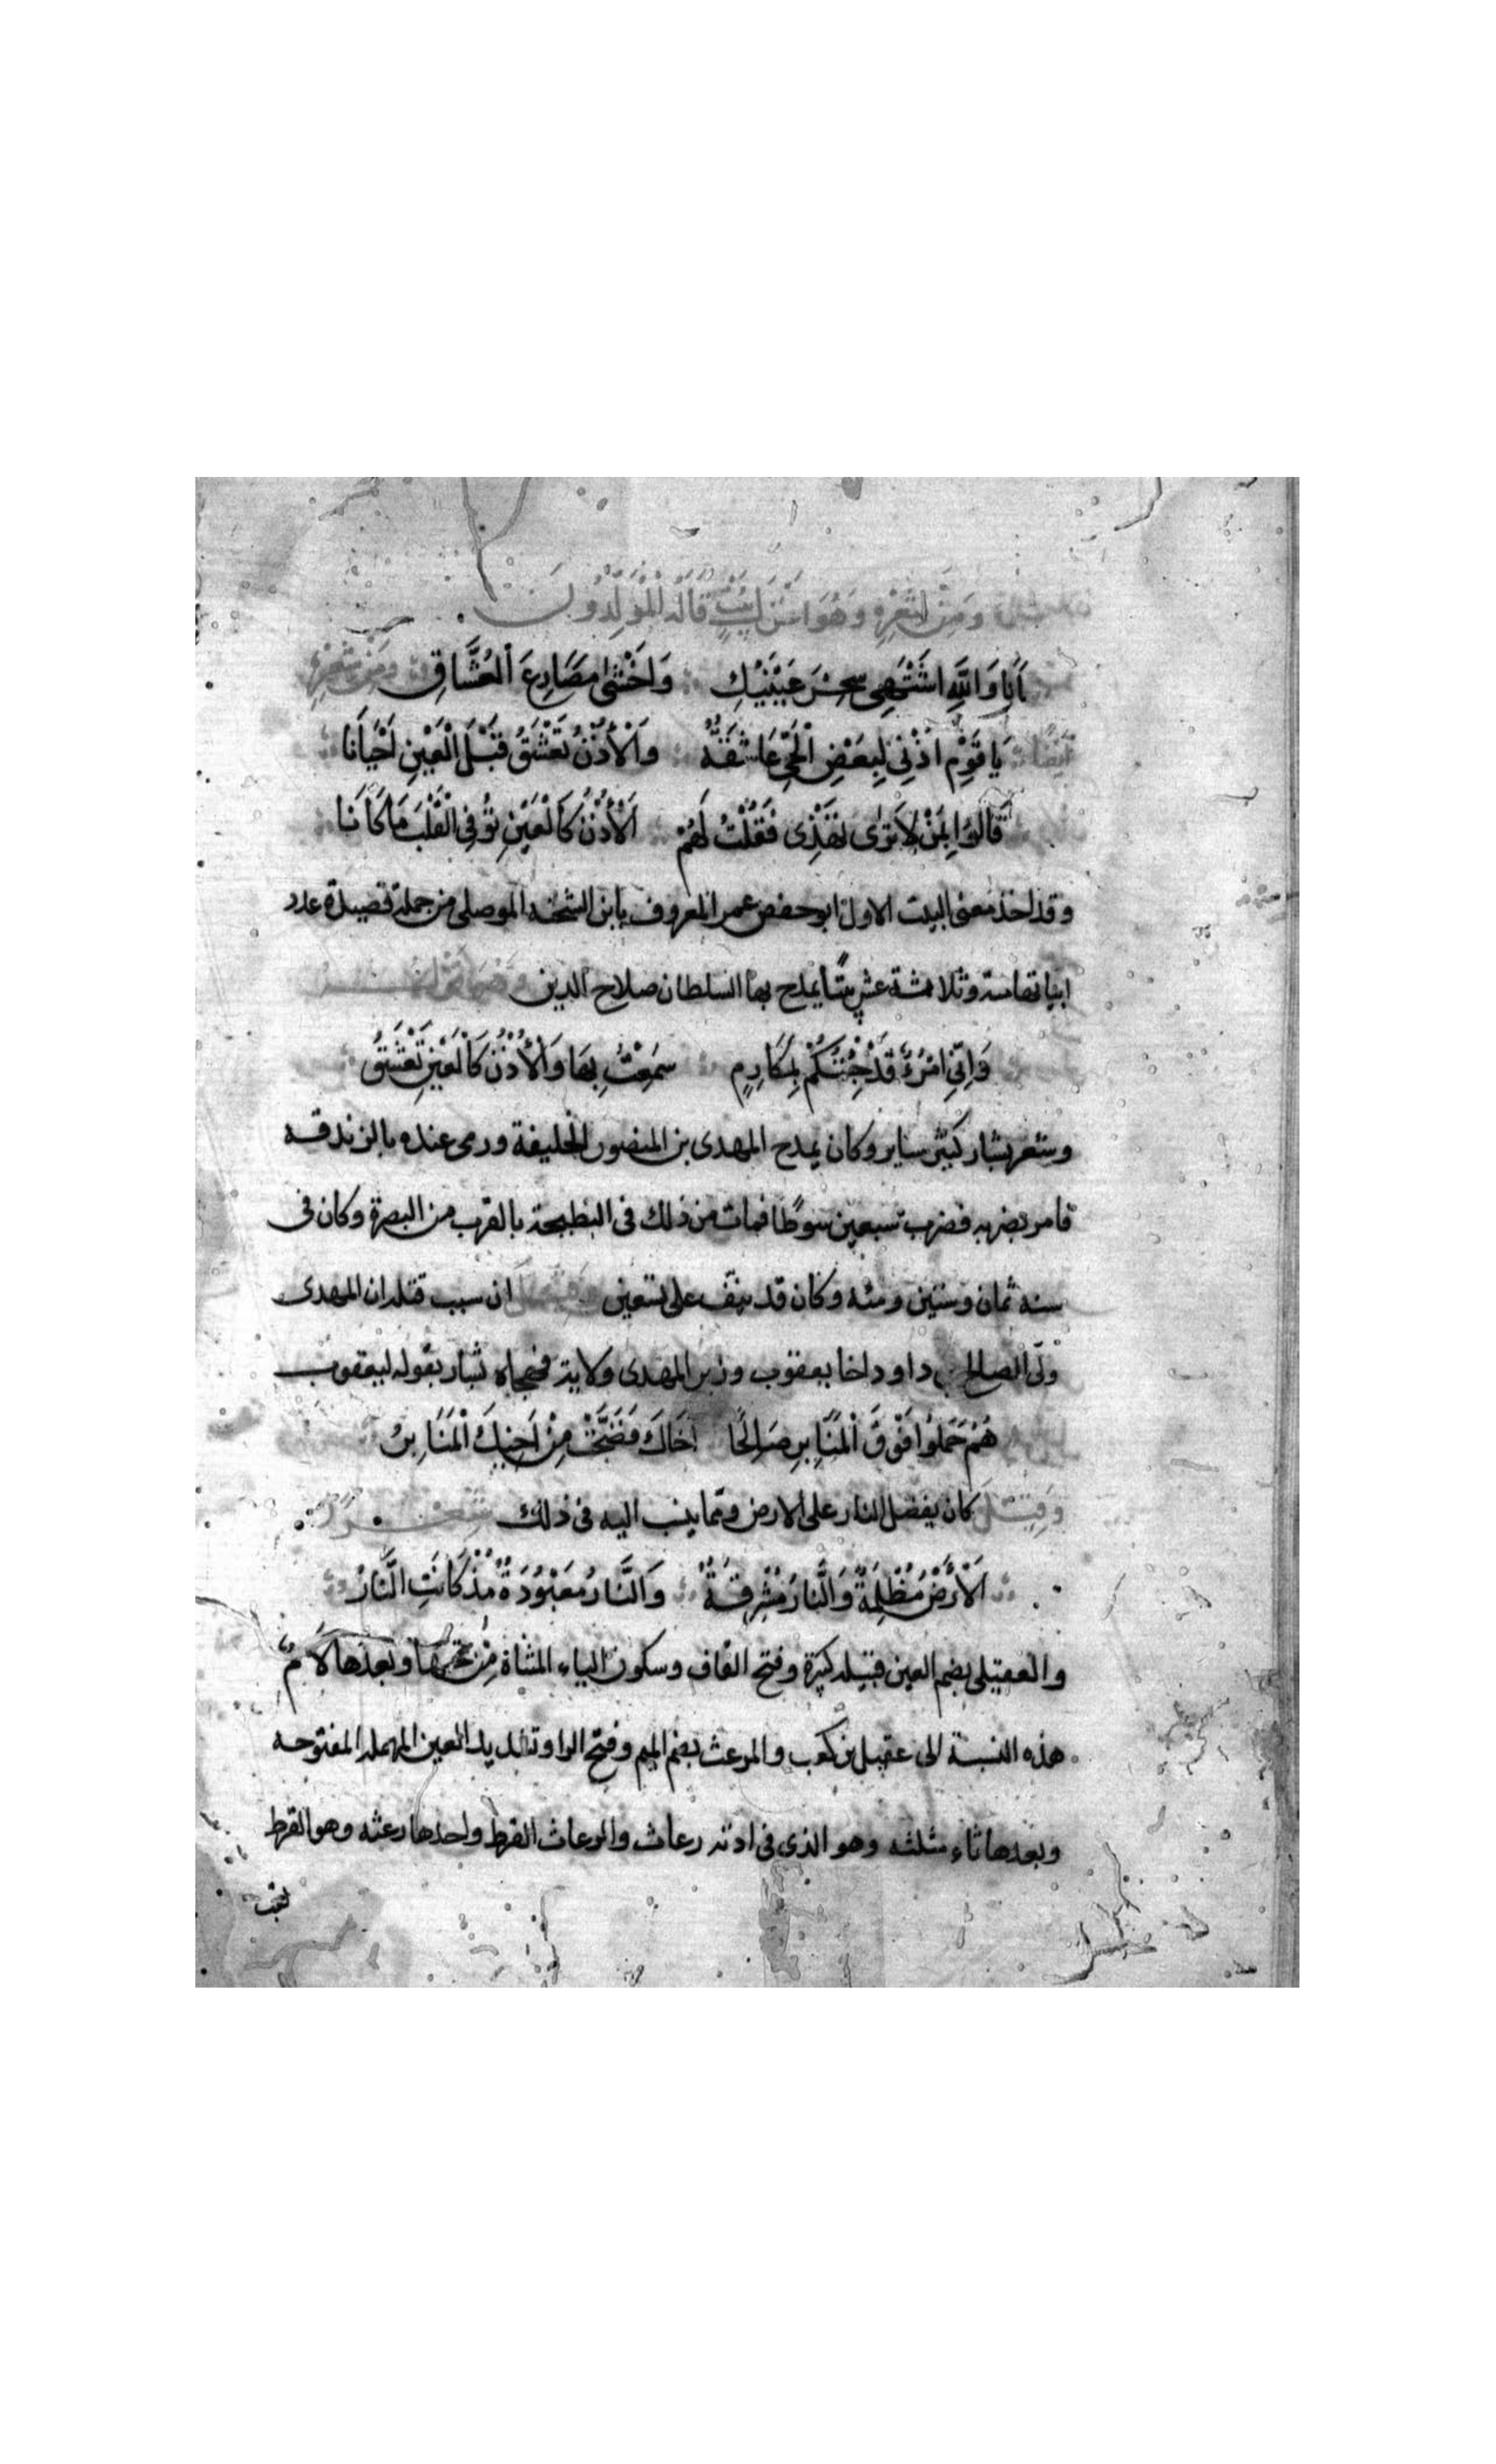 ومن شعره وهو اغزل بيت قاله المولدون
اَنَا وَاللّٰهِ اشْتَهِى سِحْرَ عَيْنَيْكِ وَاَخْشٰى مَصَارِعَ الْعُشَّاقِ ومن شعره
ايضا يَا قَوْمِ اُذْنِى لِبَعْضِ الْحَىِّ عَاشِقَةٌ وَالْأُذْنُ تَعْشَقُ قَبْلَ الْعَيْنِ اَحْيَانَا
قَالُوا بِمَنْ لَا تَرٰى تَهْذِى فَقُلْتُ لَهُمْ اَلْأُذْنُ كَالْعَيْنِ تُوفِى الْقَلْبَ مَا كَانَا
وقد اخذ معنى البيت الاول ابو حفص عمر المعروف بابن الشحنه الموصلى من جملة قصيدة عدد
ابياتها مئة وثلاثة عشر بيتًا يمدح بها السلطان صلاح الدين
وَاِنِّى امْرُءٌ قَدْ جِئْتُكُمْ لِمَكَارِمٍ سَمِعْتُ بِهَا وَالْأُذْنُ كَالْعَيْنِ تَعْشَقُ
وشعر بشار كثير ساير وكان يمدح المهدى بن المنصور الخليفة ورمى عنده بالزندقه
فامر بضربه فضرب سبعين سوطًا فمات من ذلك فى البطيحة بالقرب من البصرة وكان فى
سنه ثمان وستين ومئه وكان قد نيّف على تسعين وقيل ان سبب قتله ان المهدى
ولّى الصالح بن داود اخا يعقوب وزير المهدى ولاية فهجاه بشار بقوله ليعقوب
هُمُ حَمَلُوا فَوْقَ الْمَنَابِرِ صَالِحًا اَخَاكَ فَضَجَّتْ مِنْ اَخِيكَ الْمَنَابِرُ
وقيل كان يفضل النار على الارض ومما ينسب اليه فى ذلك شعر
اَلْأَرْضُ مُظْلِمَةٌ وَالنَّارُ مُشْرِقَةٌ وَالنَّارُ مَعْبُودَةٌ مُذْ كَانَتِ النَّارُ
والعقيلى بضم العين قبيله كبيرة وفتح القاف وسكون الياء المثناة من تحتها وبعدها لَامٌ
هذه النسبة الى عقيل بن كعب والمرعث بضم الميم وفتح الرا وتشديد العين المهمله المفتوحه
وبعدها ثاء مثلثه وهو الذى فى اذنه رعاث والرعاث القرط واحدها رعثه وهو القرط